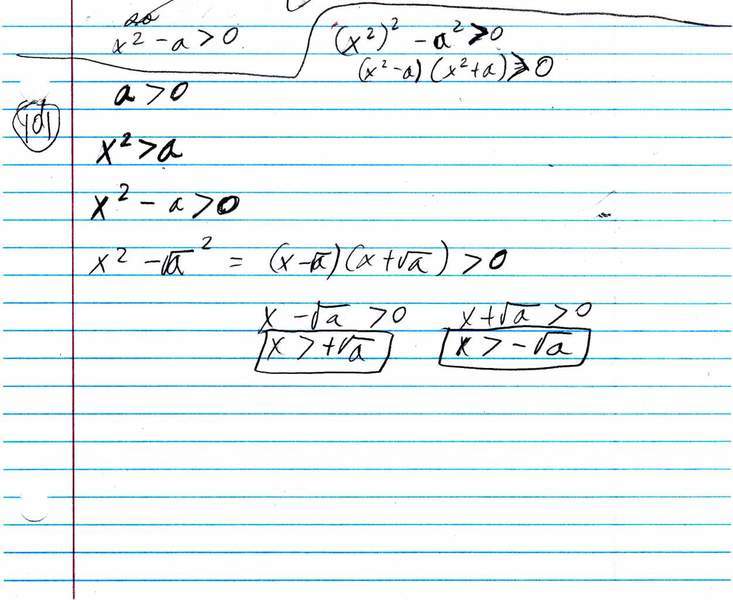 x² - a > 0
(x²)² - a² > 0
(x² - a)(x² + a) > 0
a > 0
x² > a
x² - a > 0
x² - √a² = (x - √a)(x + √a) > 0
x - √a > 0 x + √a > 0
x > +√a x > -√a